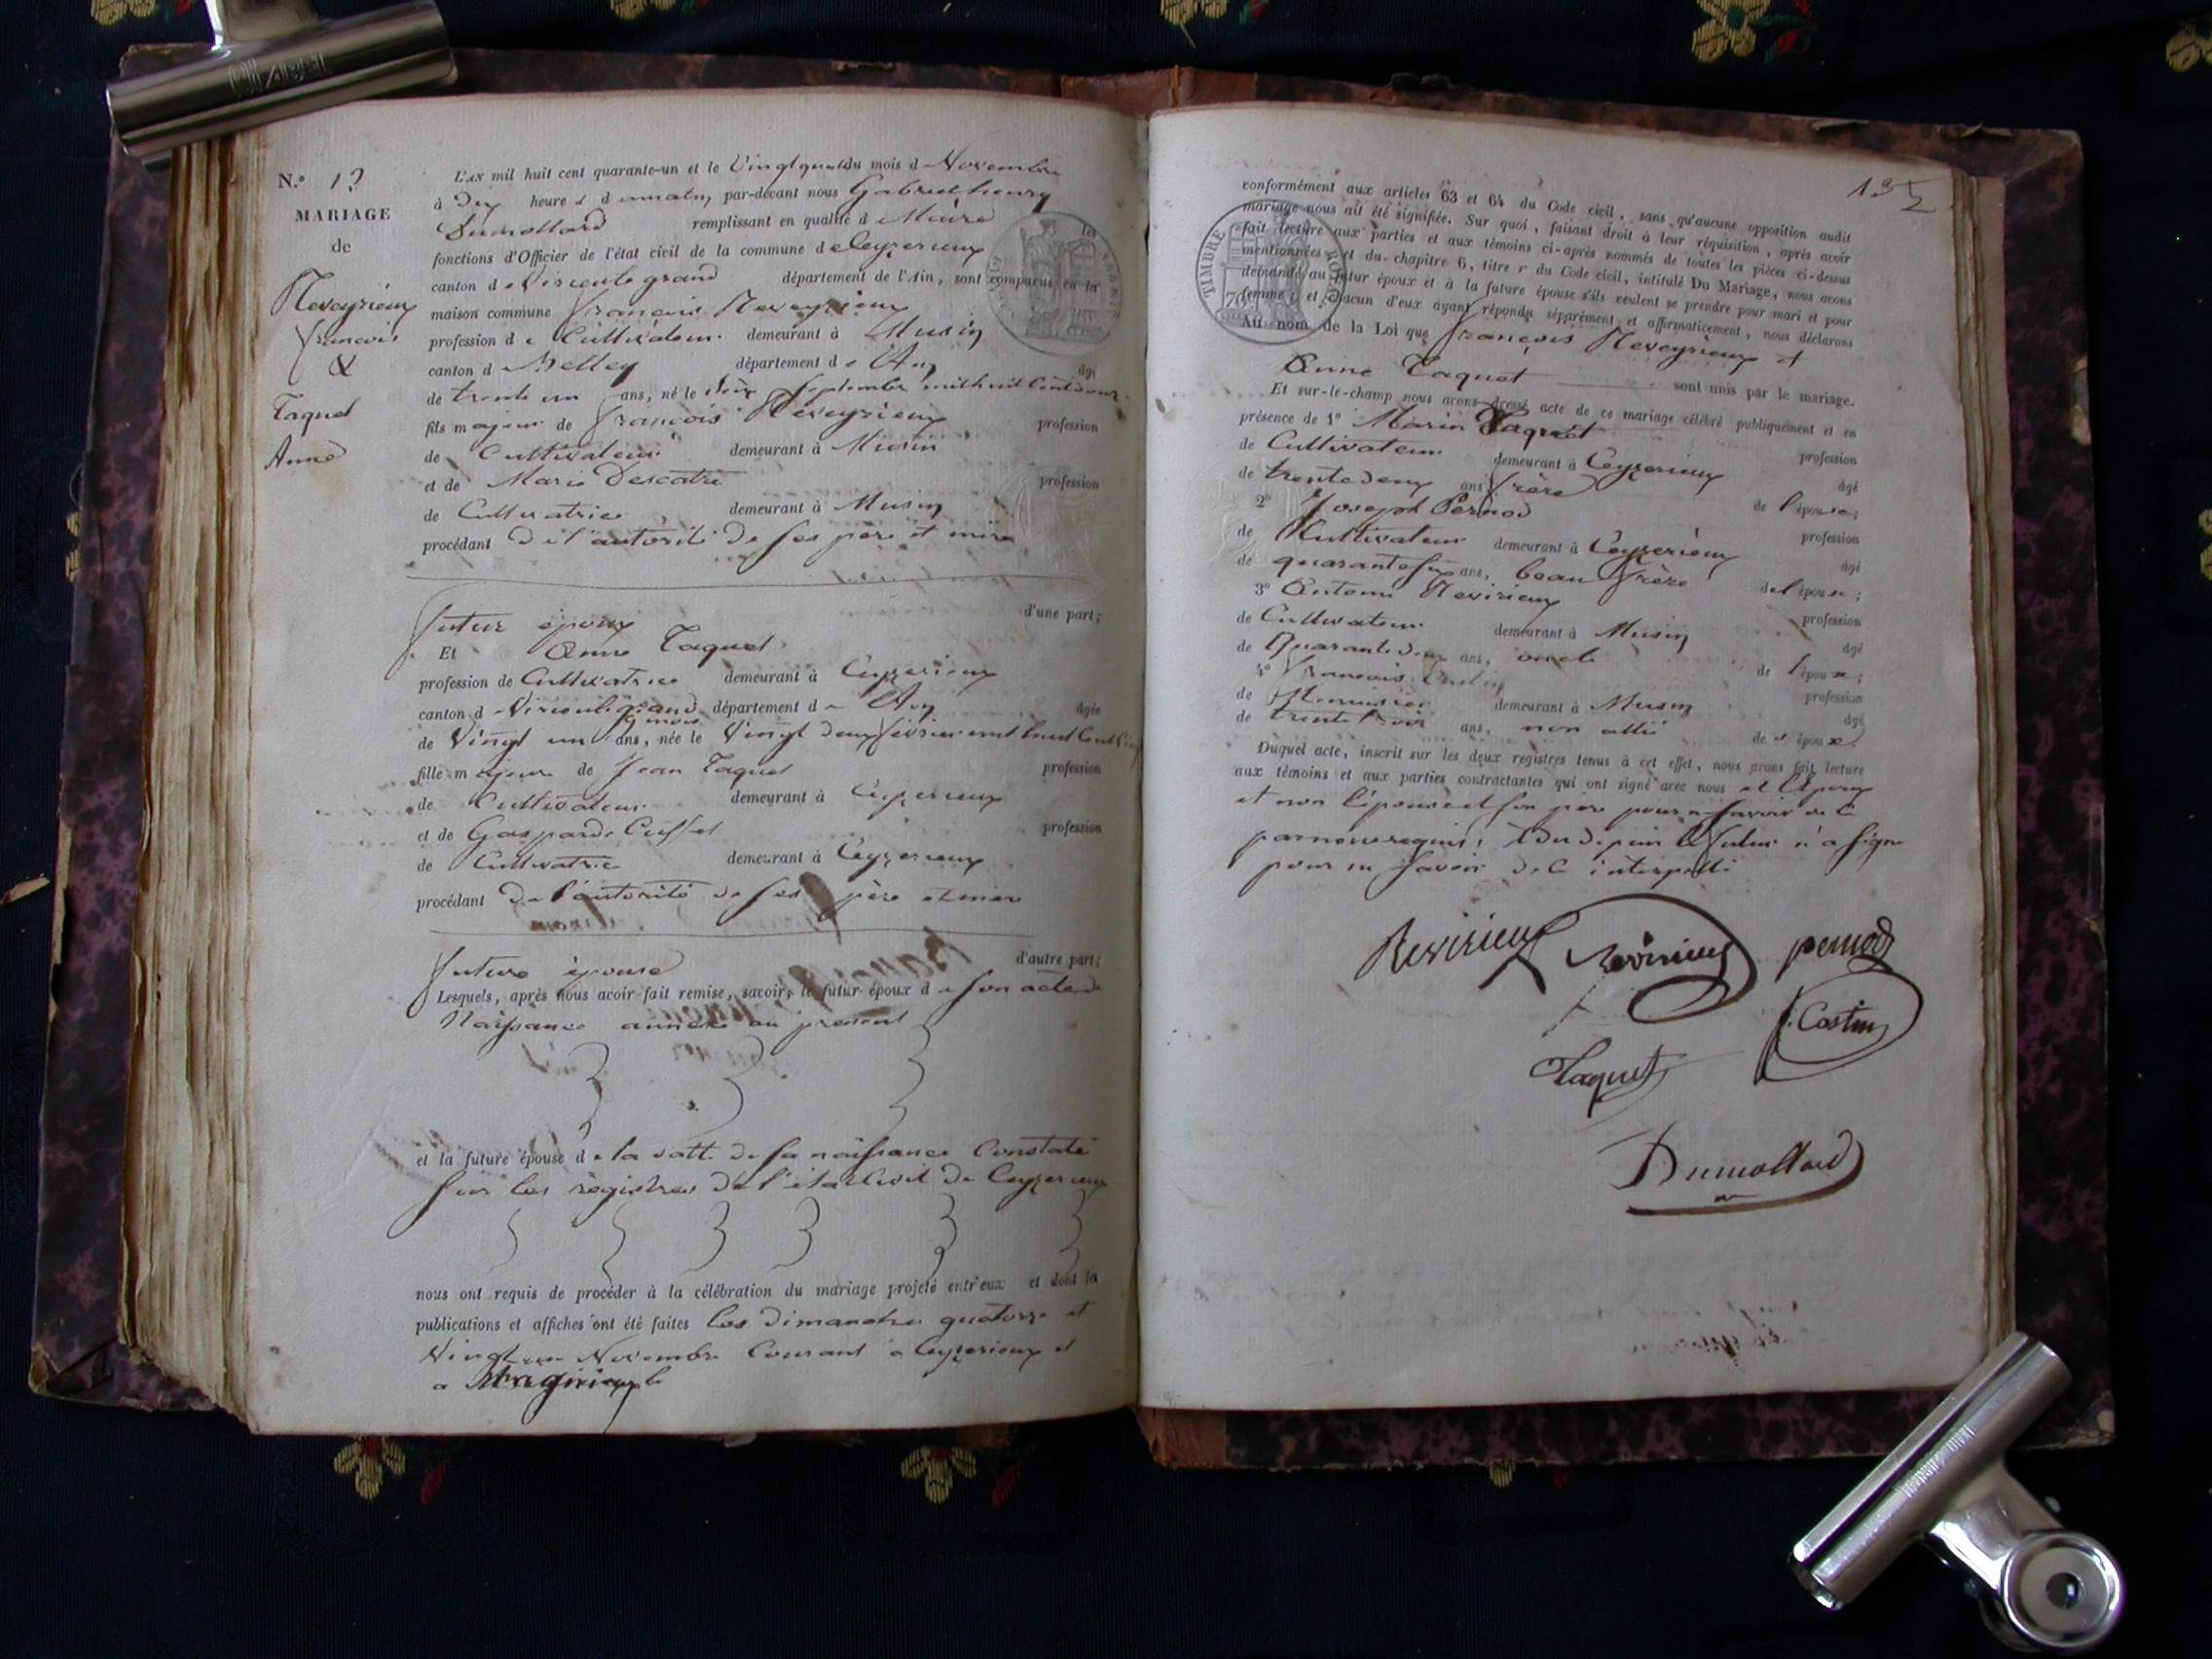 N.º 13
MARIAGE
de
Reveyrieux
François
&
Taquet
Anne
L'AN mil huit cent quarante-un et le Vingt quatre du mois de Novembre
à Dix heures du matin, par-devant nous Gabriel henry
Dumollard remplissant en qualité de Maire
fonctions d'Officier de l'état civil de la commune de Ceyzerieux
canton de Virieu le grand département de l'Ain, sont comparus en la
maison commune François Reveyrieux
profession de Cultivateur demeurant à Musin
canton de Belley département de l'Ain âgé
de trente un ans, né le Septembre mil huit Cent
fils majeur de François Reveyrieux profession
de Cultivateur demeurant à Musin
et de Marie Descatre profession
de Cultivatrice demeurant à Musin
procédant de l'autorité de ses père et mère
futur époux d'une part;
Et Anne Taquet
profession de Cultivatrice demeurant à Ceyzerieux
canton de Virieu le grand département de l'Ain âgée
de Vingt un ans, 9 mois née le Vingt deux février mil huit Cent
fille majeure de Jean Taquet profession
de Cultivateur demeurant à Ceyzerieux
et de Gasparde Cuffet profession
de Cultivatrice demeurant à Ceyzerieux
procédant De l'autorité de ses père et mère
future épouse d'autre part;
Lesquels, après nous avoir fait remise, savoir, le futur époux de son acte de
Naissance annexé au présent
et la future épouse de la datte de sa naissance Constatée
sur les registres de l'état Civil de Ceyzerieux
nous ont requis de procéder à la célébration du mariage projeté entr'eux et dont les
publications et affiches ont été faites les dimanches quatorze et
Vingt un Novembre Courant à Ceyzerieux et
a
135
conformément aux articles 63 et 64 du Code civil, sans qu'aucune opposition audit
mariage nous ait été signifiée. Sur quoi, faisant droit à leur réquisition, après avoir
fait lecture aux parties et aux témoins ci-après nommés de toutes les pièces ci-dessus
mentionnées et du chapitre 6, titre v du Code civil, intitulé Du Mariage, nous avons
demandé au futur époux et à la future épouse s'ils veulent se prendre pour mari et pour
femme; et chacun d'eux ayant répondu séparément et affirmativement, nous déclarons
Au nom de la Loi que François Reveyrieux et
Anne Taquet sont unis par le mariage.
Et sur-le-champ nous avons dressé acte de ce mariage célébré publiquement et en
présence de 1º Marin Taquet profession
de Cultivateur demeurant à Ceyzerieux âgé
de trente deux ans, frère de l'épouse;
2º Joseph Pernod profession
de Cultivateur demeurant à Ceyzerieux âgé
de quarante six ans, beau frère de l'épouse;
3º Antoine Revirieux profession
de Cultivateur demeurant à Musin âgé
de Quarante deux ans, oncle de l'époux;
4º François profession
de Menuisier demeurant à Musin âgé
de trente trois ans, non allié des époux.
Duquel acte, inscrit sur les deux registres tenus à cet effet, nous avons fait lecture
aux témoins et aux parties contractantes qui ont signé avec nous et l'époux
et non l'épouse et son père pour ne savoir de ce
par nous requis,
pour ne savoir de ce interpellé
TIMBRE ROYAL
70
Revirieux Revirieux pernod
f. Costin
Taquet
Dumollard